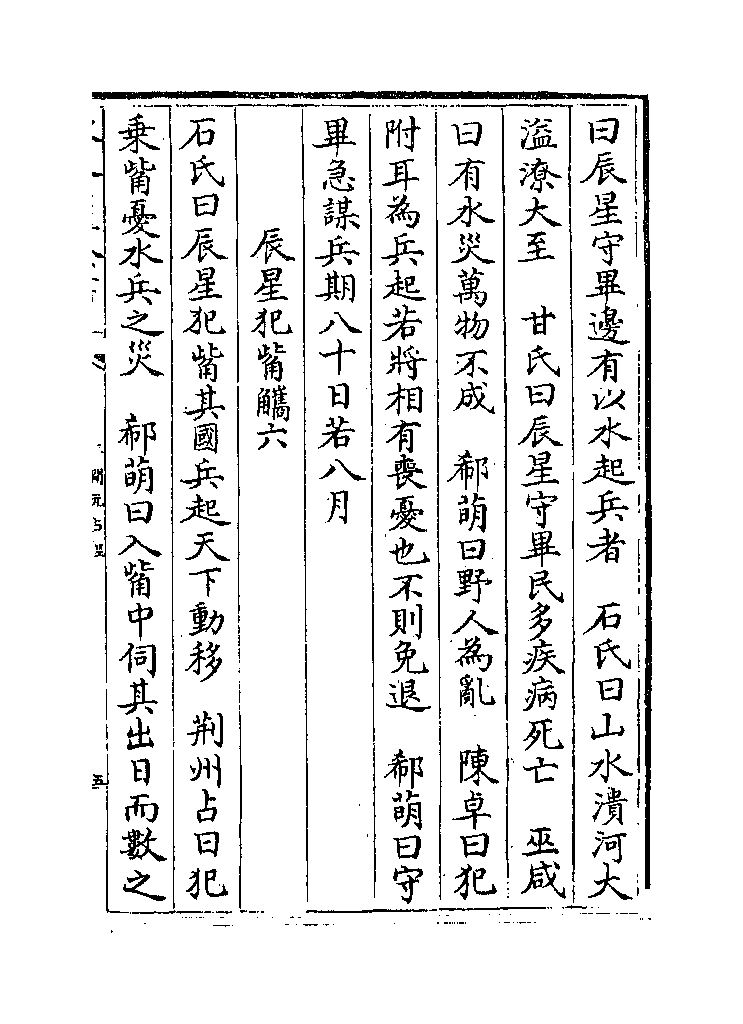 曰辰星守畢邊有以水起兵者　石氏曰山水潰河大
溢潦大至　甘氏曰辰星守畢民多疾病死亡　巫咸
曰有水災萬物不成　郗萌曰野人為亂　陳卓曰犯
附耳為兵起若將相有喪憂也不則免退　郗萌曰守
畢急謀兵期八十日若八月
辰星犯觜觿六
石氏曰辰星犯觜其國兵起天下動移　荆州占曰犯
乗觜憂水兵之災　郗萌曰入觜中伺其出日而數之
開元占經
五